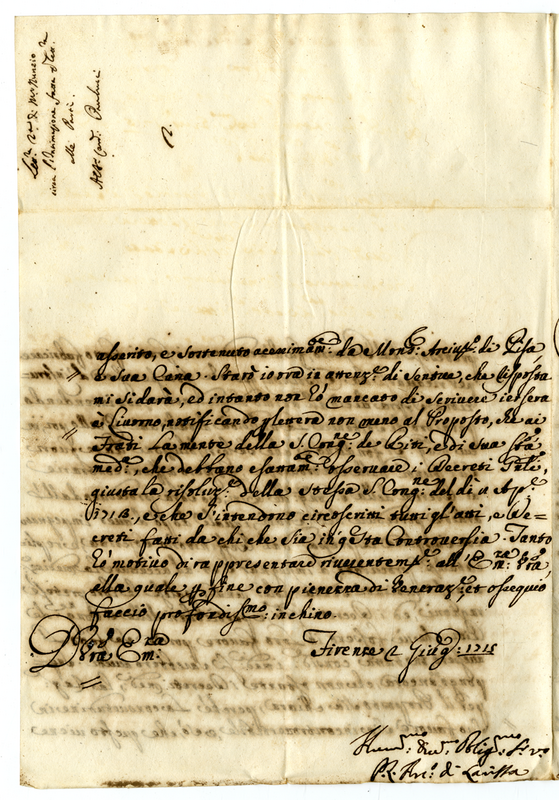 Lett.ra di Mr Nunzio
circa l'Intimazione fatta
alle Parti.
All'Em. Card. Paulucci
2.
asserito, e sostenuto acerrimam.te da Mons.r Arciu.o di Pisa,
e Sua Curia. Starò io ora in attenz.e di Sentire, che risposta
mi Si darà, ed intanto non hò mancato di Scrivere ier sera
à Liuorno, notificando p lettera non meno al Proposto, che ai
Frati La mente della S. Cong.e de Riti, e di Sua S.tà
med.a, che debbano esattam.te osservare i Decreti
giusta la risoluz.e della Stessa S. Cong.ne del dì 11 Ap.e
1713., e che S'intendino circoscritti tutti gl'atti, e De=
creti fatti da chi che Sia in q.esta Controversia. Tanto
hò motivo di rappresentare riverentem.te all'E.ma V.ra,
alla quale p fine con pienezza di Veneraz.e, et ossequio
faccio profondiss.mo inchino.
D V.ra Em.za
Firenze 2 Giug.o 1715
Hum.mo Div.mo Oblig.mo S.r v.o
Arc.o di Larissa